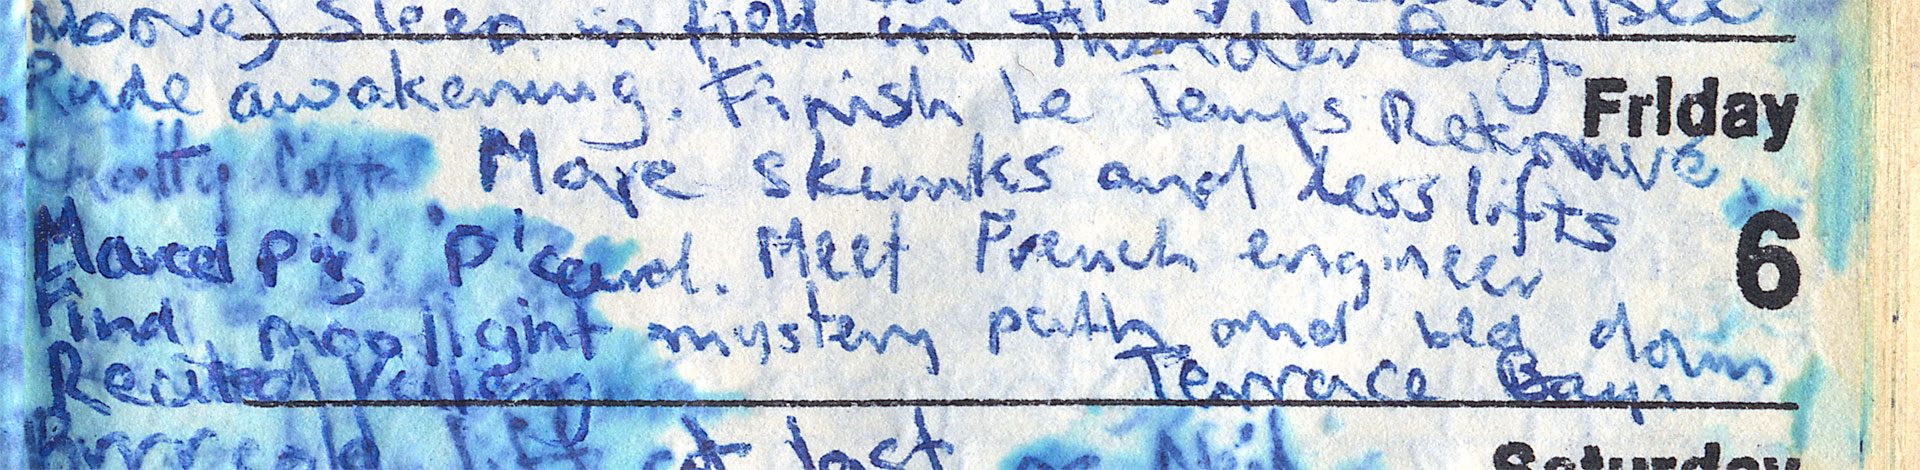 above) Sleep in field in Thunder Bay.
Rude awakening. Finish Le Temps Retrouvé
Friday
Chatty lift More skunks and less lifts
Marcel pig 'P'card. Meet French engineer
6
Find moonlight mystery path and bed down
Terrace Bay.
Brrrr cold lift at last
Saturday